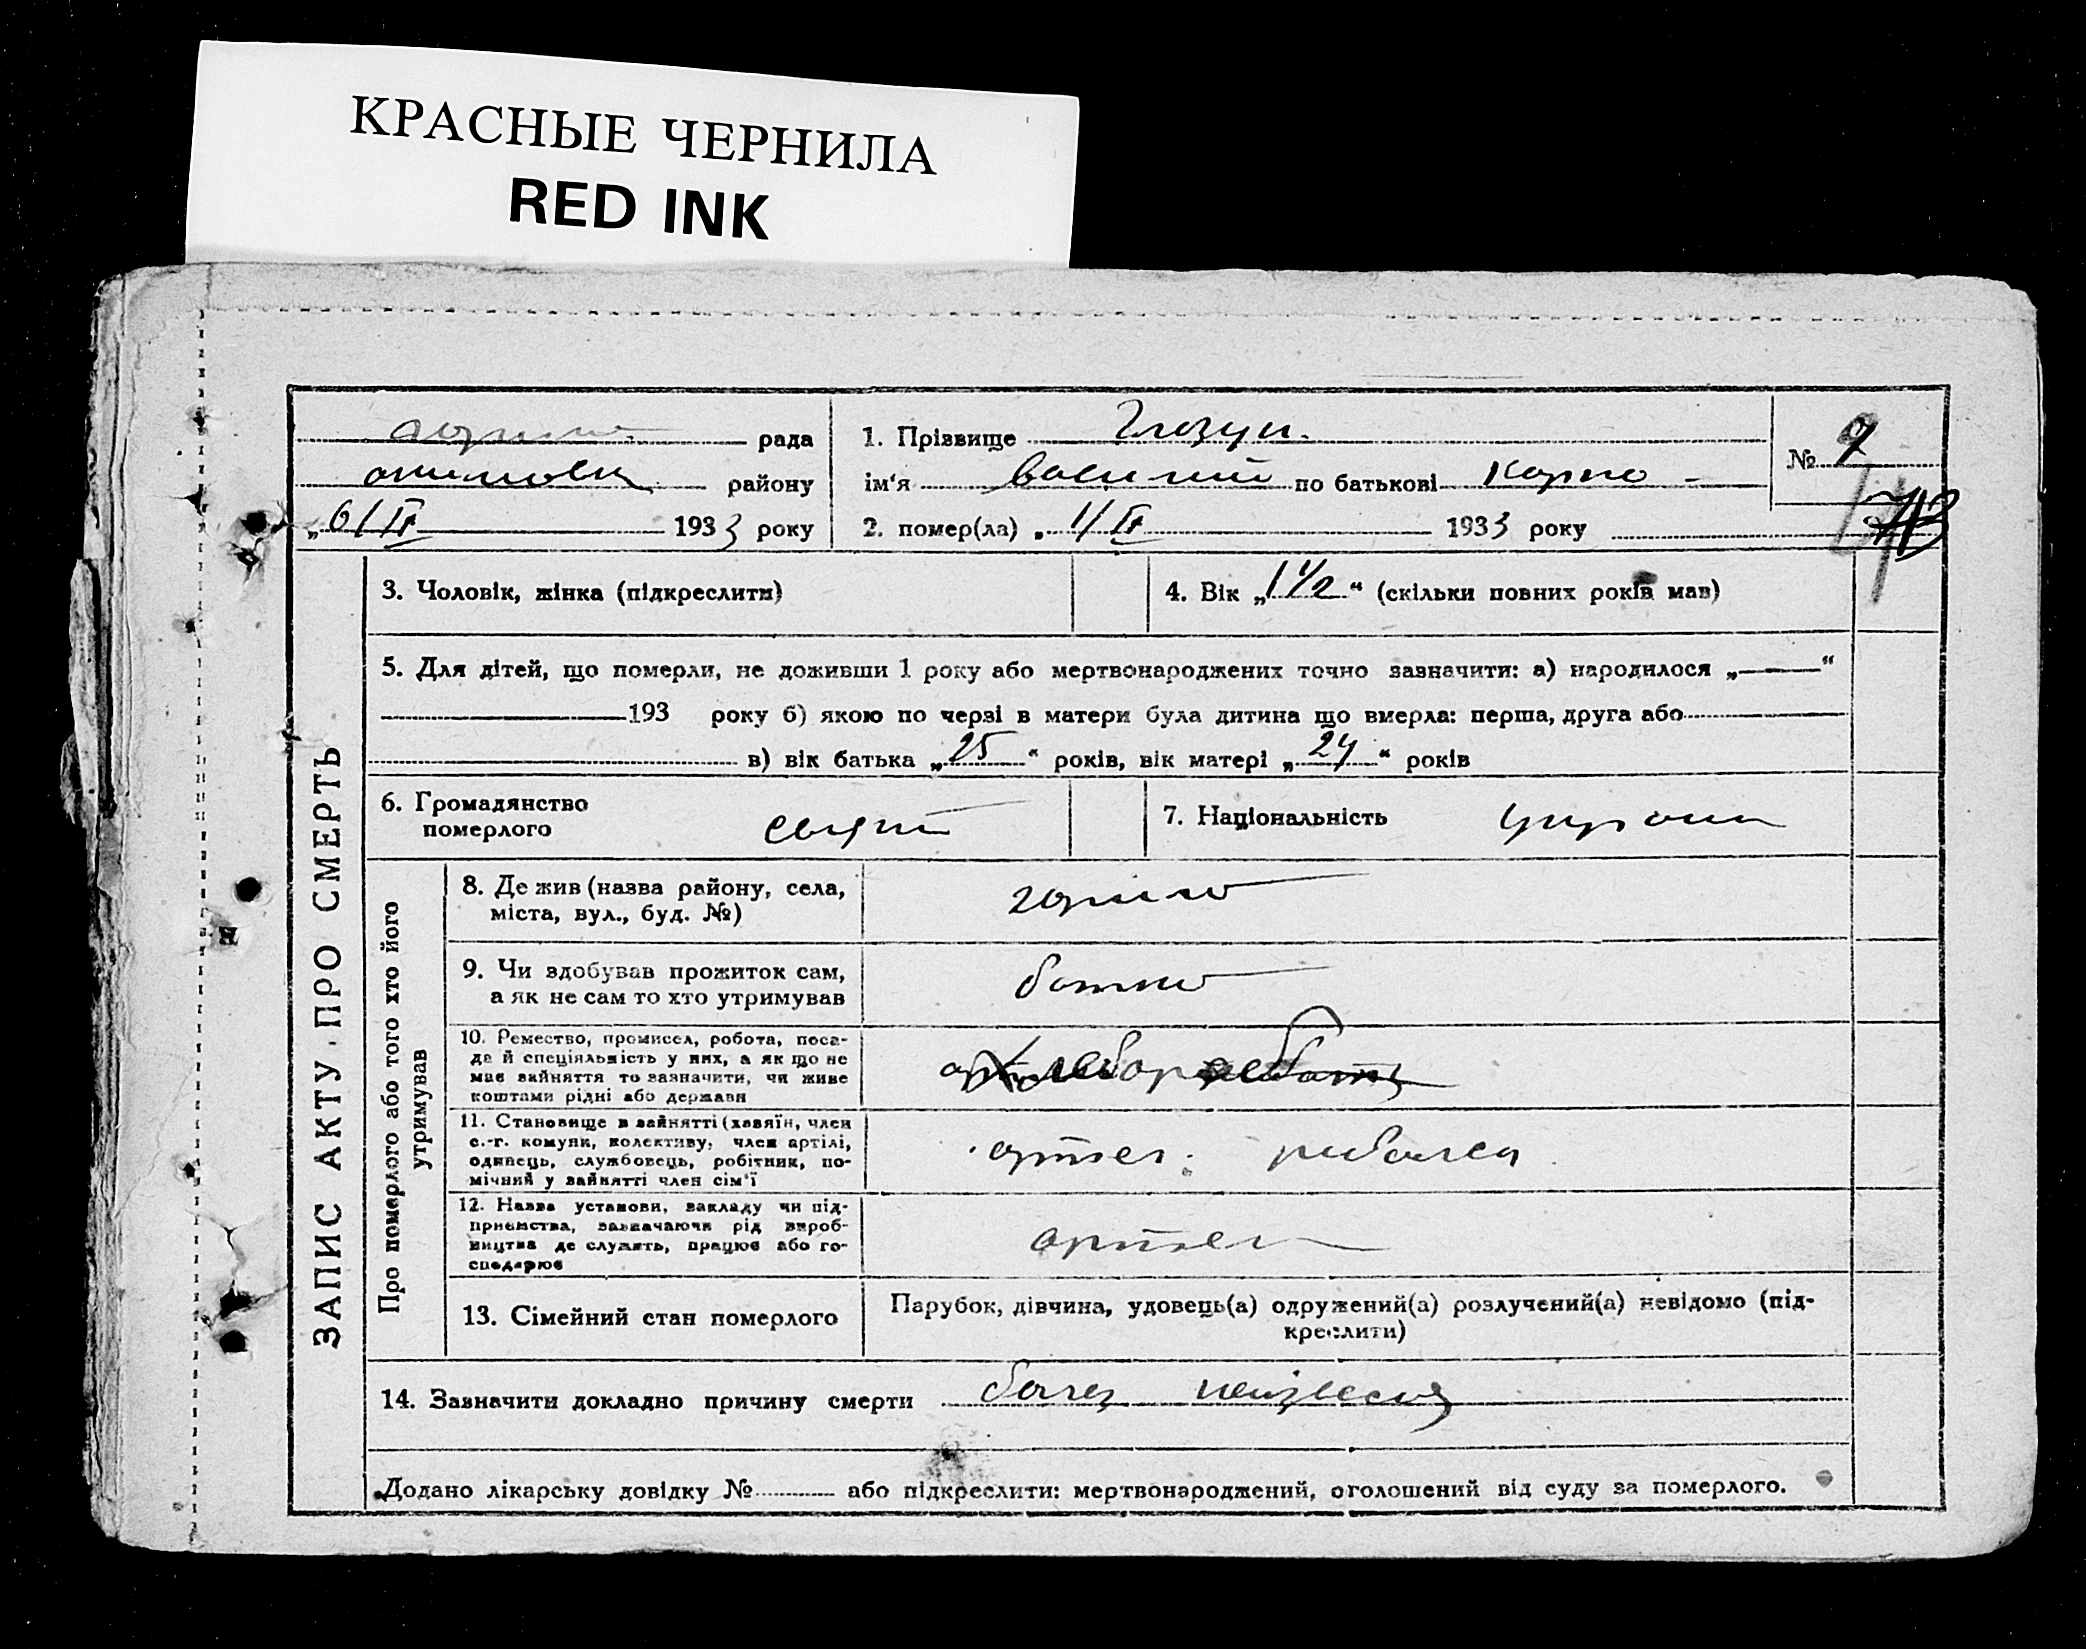 КРАСНЫЕ ЧЕРНИЛА
RED INK
рада
району
„6/IV 1933 року
1. Прізвище Глозун.
ім'я Василий по батькові Карпо -
2. помер(ла) „1/IV 1933 року
№ 9
ЗАПИС АКТУ ПРО СМЕРТЬ
3. Чоловік, жінка (підкреслити)
4. Вік „1 1/2“ (скільки повних років мав)
5. Для дітей, що померли, не доживши 1 року або мертвонароджених точно зазначити: а) народилося „—“
193 року б) якою по черзі в матери була дитина що вмерла: перша, друга або
в) вік батька „25“ років, вік матері „24“ років
6. Громадянство
померлого
7. Національність украин
Про померлого або того хто його
утримував
8. Де жив (назва району, села,
міста, вул., буд. №)
9. Чи здобував прожиток сам,
а як не сам то хто утримував
батько
10. Ремество, промисел, робота, поса-
да й спеціяльність у них, а як що не
має зайняття то зазначити, чи живе
коштами рідні або держави
11. Становище в зайнятті (хазяїн, член
с.-г. комуни, колективу, член артілі,
одинець, службовець, робітник, по-
мічний у зайнятті член сім'ї
артел. рибалка
12. Назва установи, закладу чи під-
приємства, зазначаючи рід вироб-
ництва де служить, працює або го-
сподарює
артел
13. Сімейний стан померлого
Парубок, дівчина, удовець(а) одружений(а) розлучений(а) невідомо (під-
креслити)
14. Зазначити докладно причину смерти болез неизвесна
Додано лікарську довідку № або підкреслити: мертвонароджений, оголошений від суду за померлого.